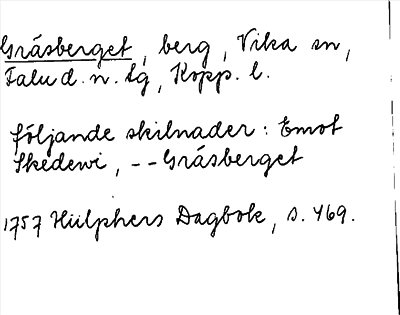 Gråsberget, berg, Vika sn,
Falu d. n. tg, Kopp. l.
följande skilnader: Emot
Skedewi, -- Gråsberget
1757 Hülphers Dagbok, s. 469.